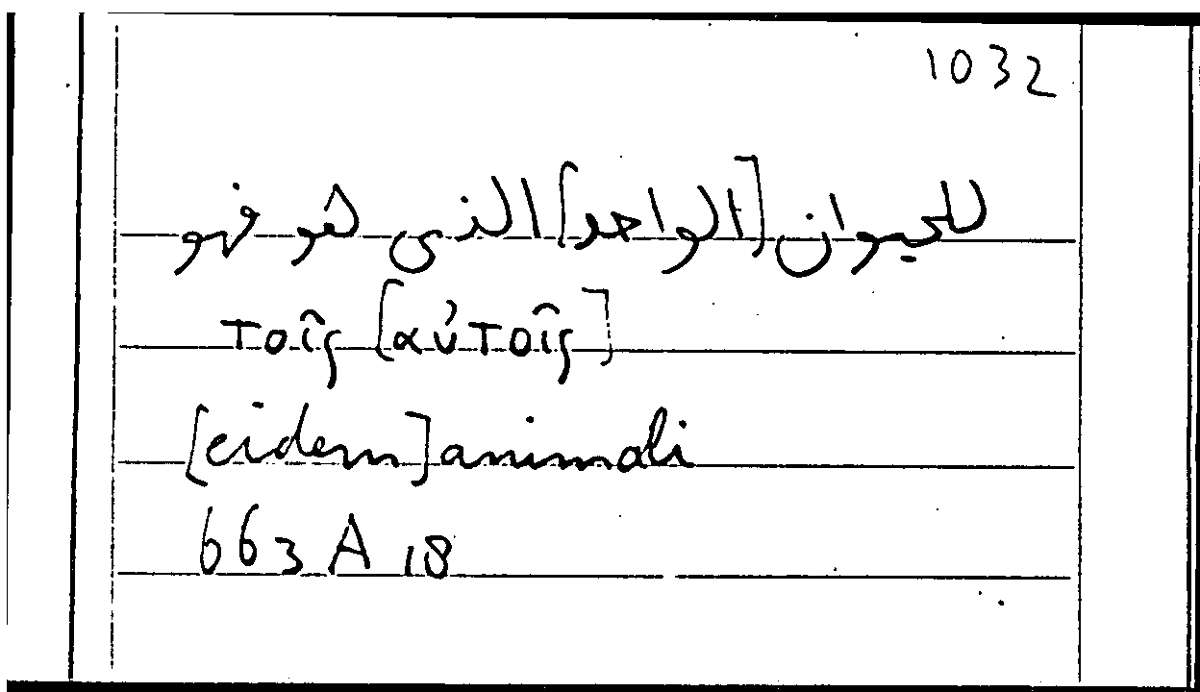 1032
للحيوان [الواحد] الذى هو فهو
τοῖς [αὐτοῖς]
[eidem] animali
663 A 18